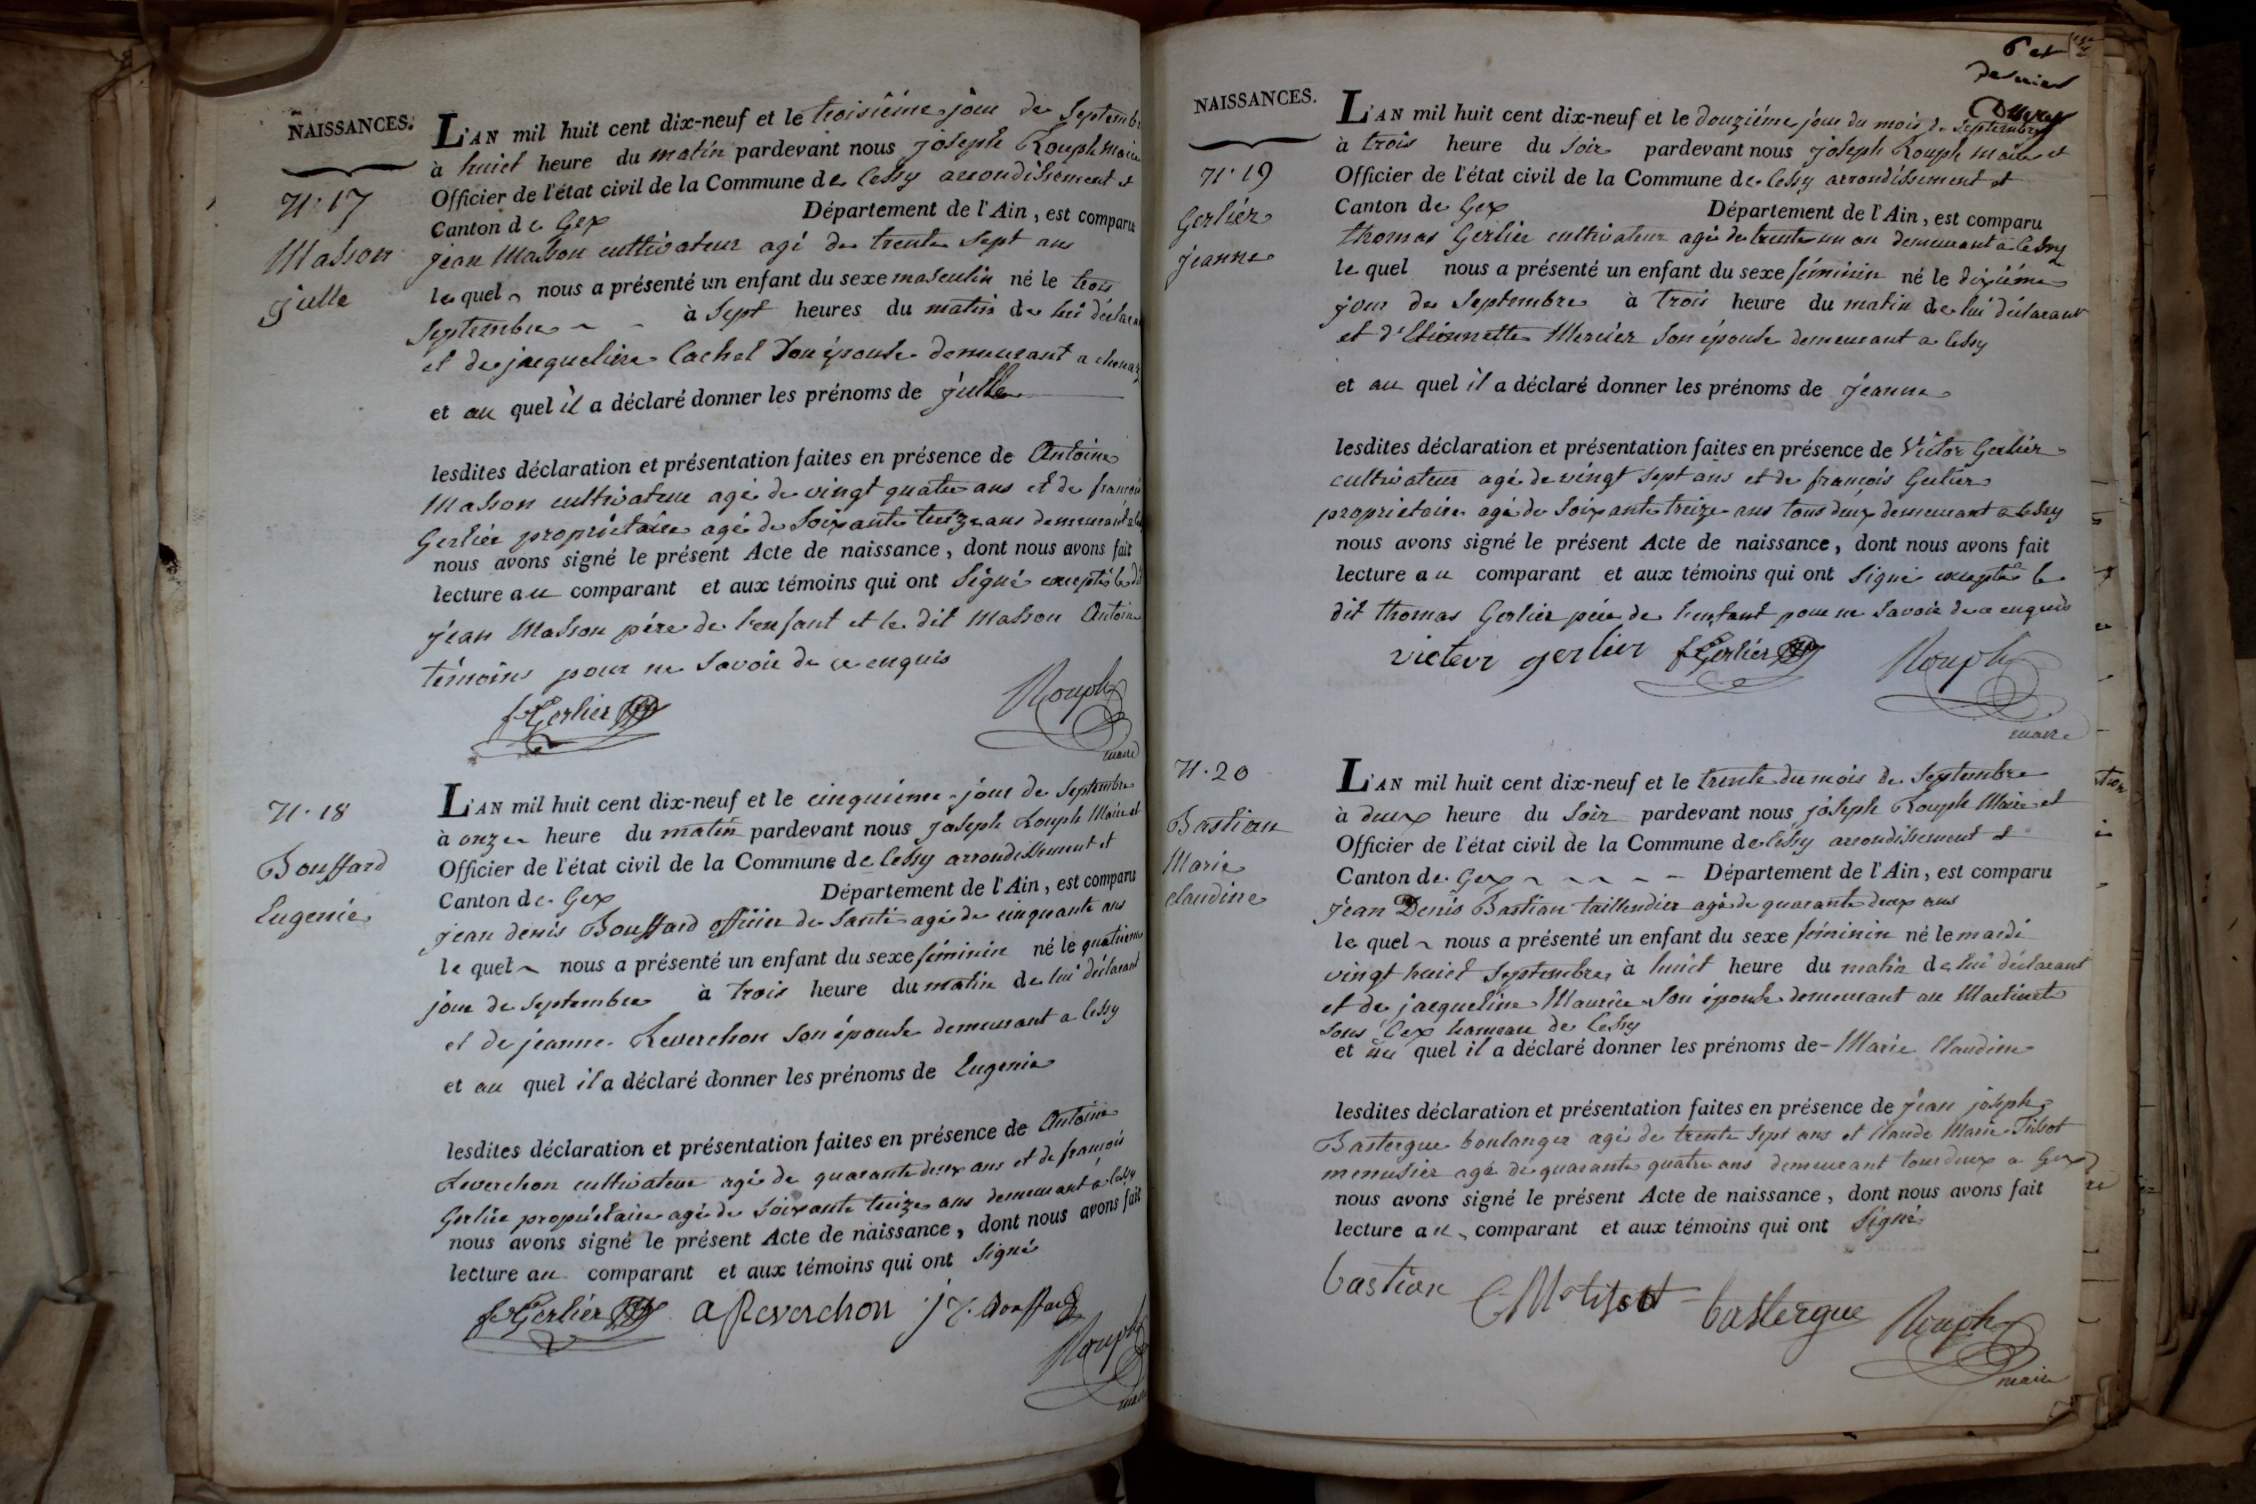 NAISSANCES.
N. 17
Masson
julle
L'AN mil huit cent dix-neuf et le troisiéme jour de Septemb
à huict heure du matin pardevant nous joseph Rouph Maire
Officier de l'état civil de la Commune de Cessy arrondissement et
Canton de Gex Département de l'Ain, est comparu
jean Masson cultivateur agé de trente Sept ans
le quel nous a présenté un enfant du sexe masculin né le trois
Septembre à Sept heures du matin de lui déclara
et de jacqueline Cachat Son épouse demeurant a
et au quel il a déclaré donner les prénoms de julle
lesdites déclaration et présentation faites en présence de Antoine
Masson cultivateur agé de vingt quatre ans et de françois
Gerlier propriétaire agé de Soixante treize ans demeurant a
nous avons signé le présent Acte de naissance, dont nous avons fait
lecture au comparant et aux témoins qui ont Signé excepté le dit
jean Masson pére de l'enfant et le dit Masson Antoine
témoins pour ne Savoir de ce enquis
f Gerlier Rouph
maire
N. 18
Bouffard
Eugenie
L'AN mil huit cent dix-neuf et le cinquiéme jour de Septembre
à onze heure du matin pardevant nous joseph Rouph Maire et
Officier de l'état civil de la Commune de Cessy arrondissement et
Canton de Gex Département de l'Ain, est comparu
jean denis Bouffard officier de Santé agé de cinquante ans
le quel nous a présenté un enfant du sexe féminin né le quatriem
jour de Septembre à trois heure du matin de lui déclarant
et de jeanne Reverchon son épouse demeurant a Cessy
et au quel il a déclaré donner les prénoms de Eugenie
lesdites déclaration et présentation faites en présence de Antoine
Reverchon cultivateur agé de quarante deux ans et de françois
Gerlier propriétaire agé de Soixante treize ans demeurant a Cessy
nous avons signé le présent Acte de naissance, dont nous avons fait
lecture au comparant et aux témoins qui ont Signé
f Gerlier a Reverchon j D. Bouffard
Rouph
maire
6 et
dernier
NAISSANCES.
N. 19
Gerliér
jeanne
L'AN mil huit cent dix-neuf et le douziéme jour du mois de Septembre
à trois heure du Soir pardevant nous joseph Rouph Maire et
Officier de l'état civil de la Commune de Cessy arrondissement et
Canton de Gex Département de l'Ain, est comparu
thomas Gerlier cultivateur agé de trente un an demeurant a Cessy
le quel nous a présenté un enfant du sexe féminin né le dixiéme
jour de Septembre à trois heure du matin de lui déclarant
et d'Etiennette Mercier Son épouse demeurant a Cessy
et au quel il a déclaré donner les prénoms de jeanne
lesdites déclaration et présentation faites en présence de Victor Gerlier
cultivateur agé de vingt Sept ans et de françois Gerlier
propriétaire agé de Soixante treize ans tous deux demeurant a Cessy
nous avons signé le présent Acte de naissance, dont nous avons fait
lecture au comparant et aux témoins qui ont Signé excepté le
dit thomas Gerlier pére de l'enfant pour ne Savoir de ce enquis
victor gerlier f Gerlier Rouph
maire
N. 20
Bastian
Marie
claudine
L'AN mil huit cent dix-neuf et le trente du mois de Septembre
à deux heure du Soir pardevant nous joseph Rouph Maire et
Officier de l'état civil de la Commune de Cessy arrondissement et
Canton de Gex Département de l'Ain, est comparu
jean Denis Bastian taillendier agé de quarante deux ans
le quel nous a présenté un enfant du sexe féminin né le mardi
vingt huict Septembre à huict heure du matin de lui déclarant
et de jacqueline Maurice Son épouse demeurant au Martinet
Sous Gex hameau de Cessy
et au quel il a déclaré donner les prénoms de Marie Claudine
lesdites déclaration et présentation faites en présence de jean joseph
Bastergue boulanger agé de trente Sept ans et Claude Marie Tissot
menusier agé de quarante quatre ans demeurant tous deux a Gex
nous avons signé le présent Acte de naissance, dont nous avons fait
lecture au comparant et aux témoins qui ont Signé
bastian C M tissot bastergue Rouph
maire